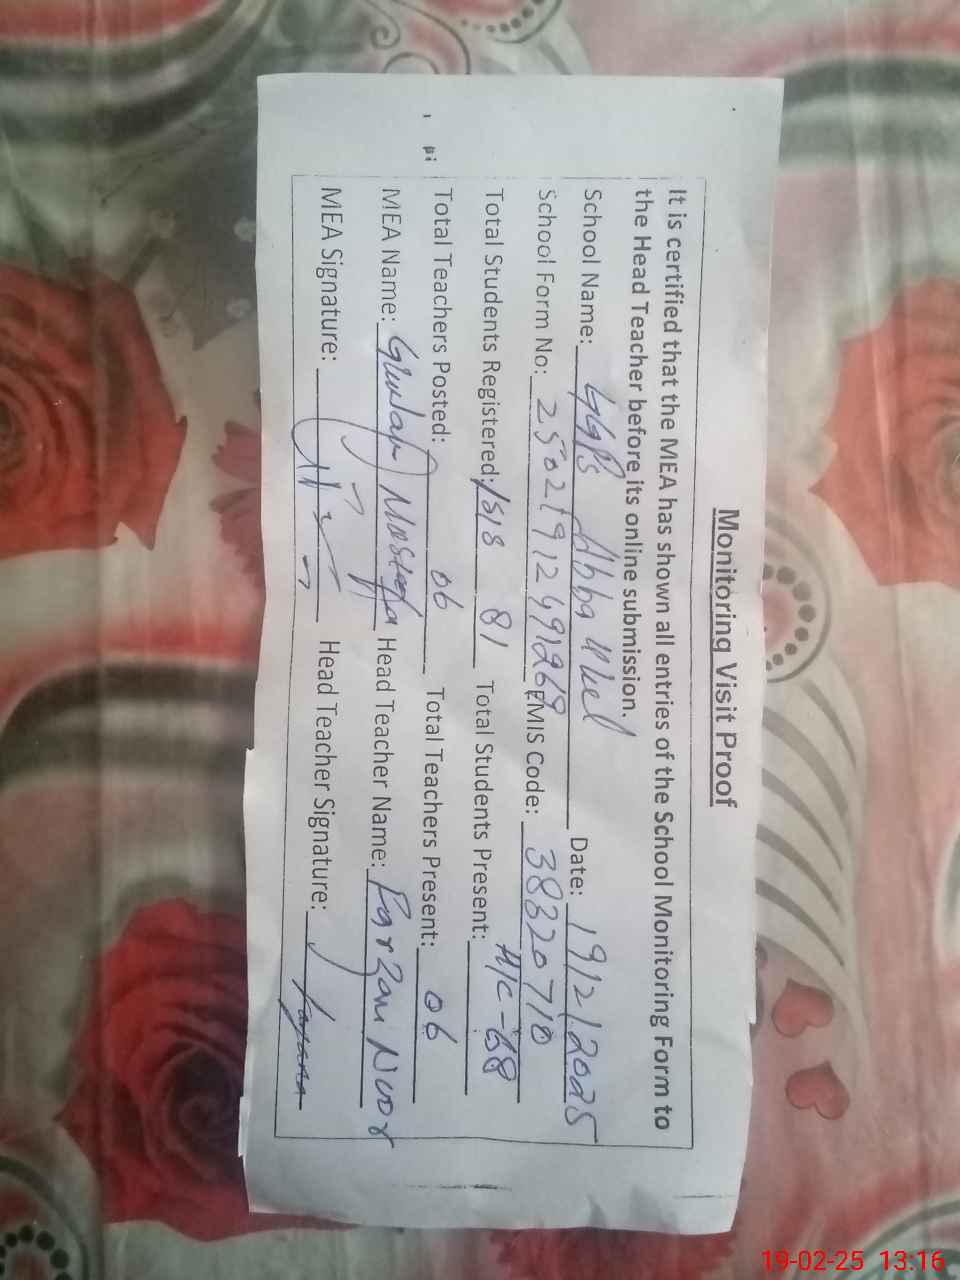 Monitoring Visit Proof
It is certified that the MEA has shown all entries of the School Monitoring Form to
the Head Teacher before its online submission.
School Name: GGPS Abba Khel Date: 19/2/2025
School Form No: 2502191249 1269 EMIS Code: 38320710
Total Students Registered: 81 Total Students Present: H/C-68
Total Teachers Posted: 06 Total Teachers Present: 06
MEA Name: Ghulam Mustafa Head Teacher Name: Farzana Noor
MEA Signature: Head Teacher Signature: Farzana
19-02-25 13:16